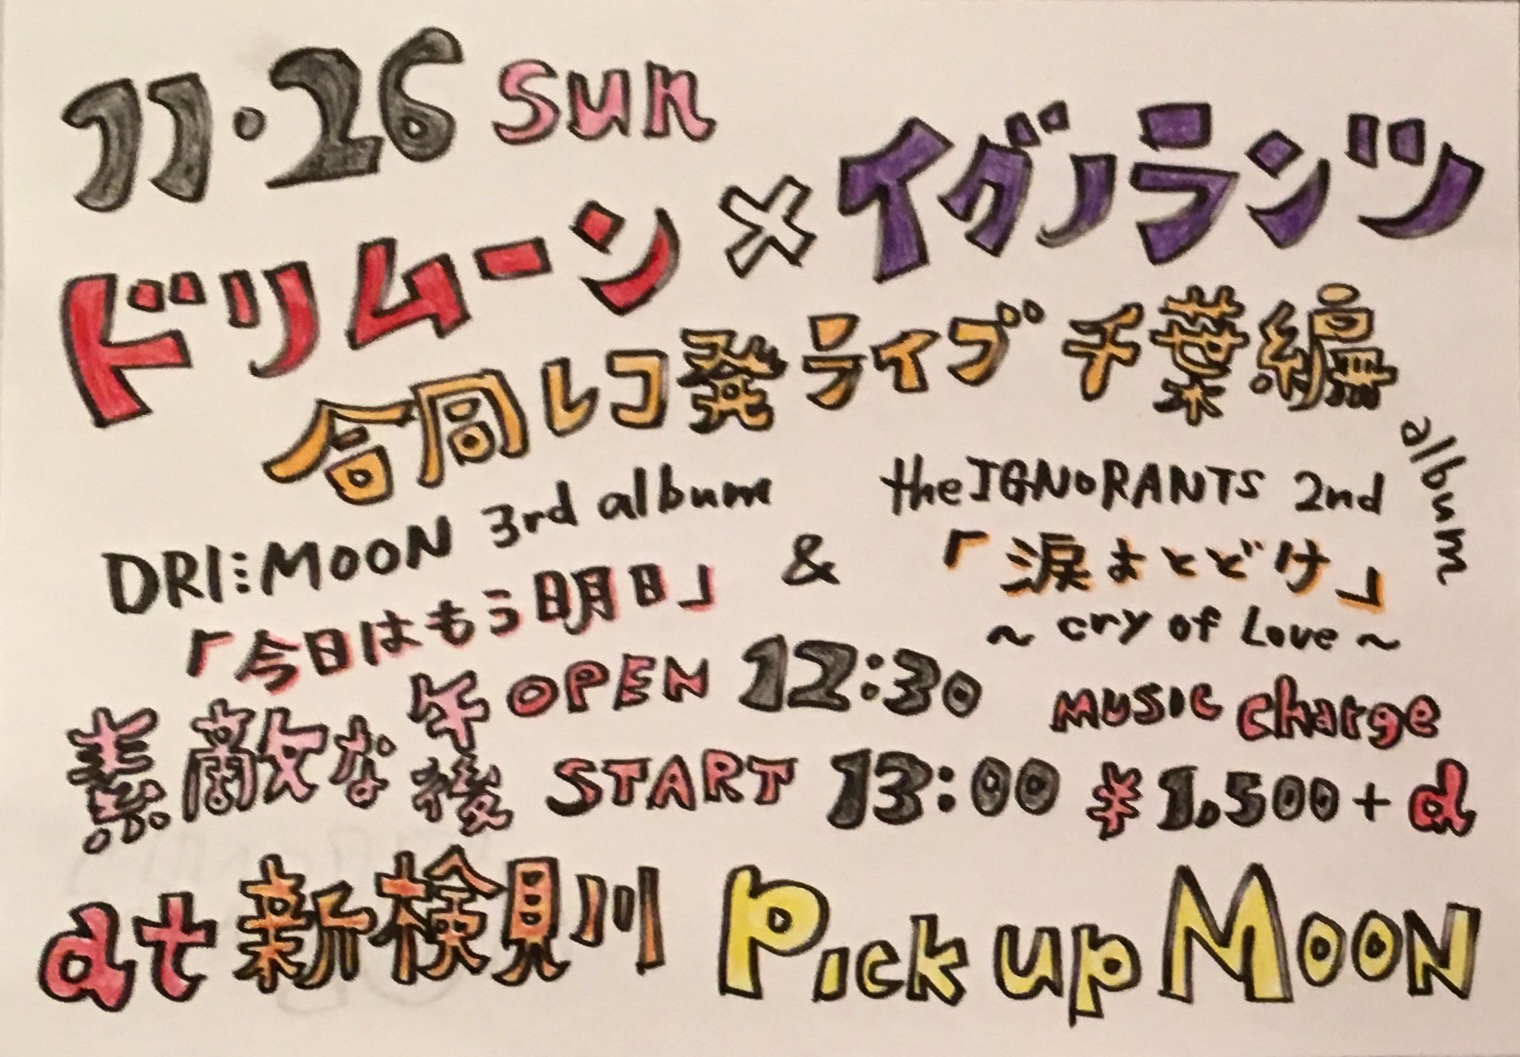 11・26 sun
ドリムーン×イグノランツ
合同レコ発ライブ 千葉編
DRI⋮MOON 3rd album
「今日はもう明日」
&
the IGNORANTS 2nd album
「涙まとどけ」
~ cry of Love ~
素敵な午後
OPEN 12:30
START 13:00
MUSIC charge
¥1.500+d
at 新検見川 Pick up MOON